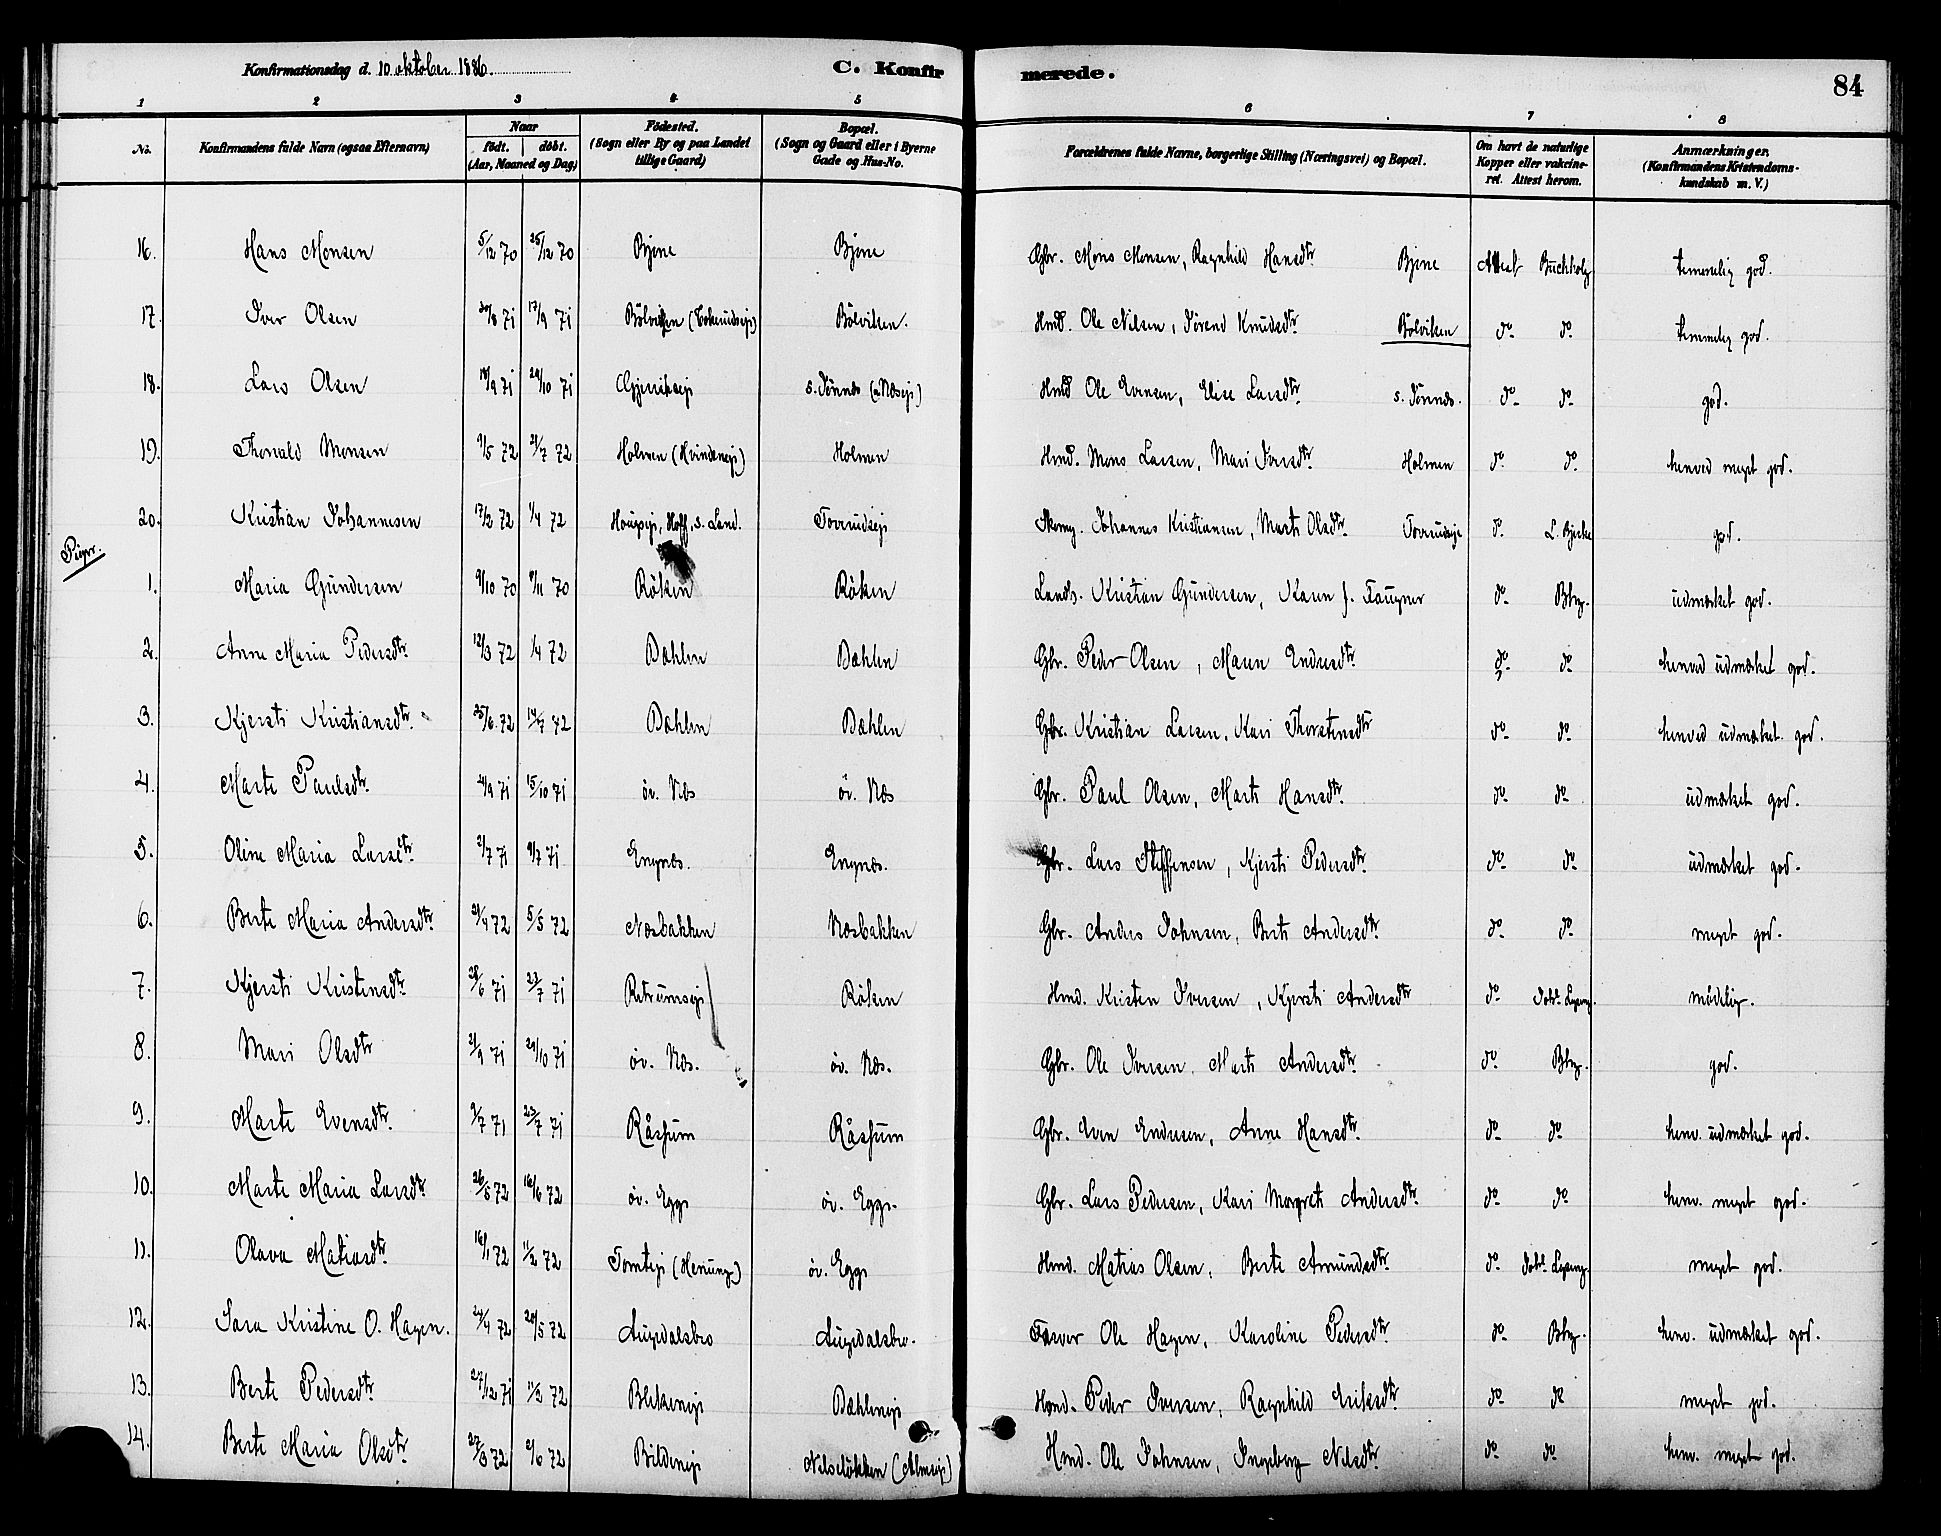 Konfirmationsdag d. 10 oktober 1886. C. Konfirmerede. 84
1 2 3 4 5 6 7 8
No. Konfirmandens fulde Navn (ogsaa Efternavn) Naar födt. döbt. (Aar, Maaned og Dag) Födested. (Sogn eller By og paa Landet tillige Gaard) Bopæl. (Sogn og Gaard eller i Byerne Gade og Hus-No. Forældrenes fulde Navne, borgerlige Stilling (Næringsvei) og Bopæl. Om havt de naturlige Kopper eller vakcineret. Attest herom. Anmærkninger. (Konfirmandens Kristendomskundskab m. V.)
16. Hans Monsen 5/12 70 25/12 70 Bjone Bjone Gbr. Mons Monsen, Ragnhild Hansdtr Bjone Attest Buchholz temmelig god.
17. Iver Olsen 30/8 71 17/9 71 Bölviken Bölviken. Hmd. Ole Nilsen, Jörend Knudsdtr Bölviken do do temmelig god.
18. Lars Olsen 18/9 71 29/10 71 s. Tönnes Hmd Ole Evensen, Elise Larsdtr s. Tönnes. do do god.
19. Thorvald Monsen 9/5 72 21/7 72 Holmen Holmen Hmd. Mons Larsen, Mari Iversdtr Holmen do do henved meget god.
20. Kristian Johannesen 17/2 72 1/4 72 Hoff, s. Land. Johannes Kristiansen, Marte Olsdtr do L. Bjerke god.
Piger.
1. Maria Gundersen 9/10 70 70 Röken Röken Landh. Kristian Gundersen, Karen f. Faugner do Bhz. udmærket god.
2. Anne Maria Pedersdtr 12/3 72 1/4 72 Dæhlen Dæhlen Gbr. Peder Olsen, Maren Endresdtr do do henved udmærket god.
3. Kjersti Kristiansdtr 25/6 72 14/7 72 Dæhlen Dæhlen Gbr. Kristian Larsen, Kari Thorstensdtr do do henved udmærket god.
4. Marte Paulsdtr 71 15/10 71 öv. Næs öv. Næs Gbr. Paul Olsen, Marte Hansdtr do do udmærket god.
5. Oline Maria Larsdtr 2/7 71 9/7 71 Engnæs. Engnæs. Gbr. Lars Steffensen, Kjersti Pedersdtr do do udmærket god.
6. Berte Maria Andersdtr 21/4 72 5/5 72 Næsbakken Næsbakken Gbr. Anders Johnsen, Berte Andersdtr do do meget god.
7. Kjersti Kristensdtr 28/6 71 23/7 71 Röken Hmd. Kristen Iversen, Kjersti Andersdtr do mådelig.
8. Mari Olsdtr 21/9 71 29/10 71 öv. Næs. öv. Næs. Gbr. Ole Iversen, Marte Andersdtr do Bhz. god.
9. Marte Evensdtr 9/7 71 23/7 71 Råssum Råssum Gbr. Even Endresen, Anne Hansdtr do do henv. udmærket god.
10. Marte Maria Larsdtr 26/5 72 16/6 72 öv. Egge öv. Egge. Gbr. Lars Pedersen, Kari Margrete Andersdtr do do henv. meget god.
11. Olava Matiasdtr 16/1 72 11/2 72 Tomteje öv. Egge Hmd. Matias Olsen, Berte Amundsdtr do meget god.
12. Sara Kristine O. Hagen. 24/4 72 20/5 72 Augedalsbro Augedalsbro. Farver Ole Hagen, Karoline Pedersdtr do Bhz. henv. udmærket god.
13. Berte Pedersdtr 27/12 71 11/2 72 Dæhleneje Hmd. Peder Iversen, Ragnhild Eriksdtr do do meget god.
14. Berte Maria Olsdtr 27/3 72 2/6 72 Bildeneje Nilselökken Hmd. Ole Johnsen, Ingeborg Nilsdtr do do henv. meget god.